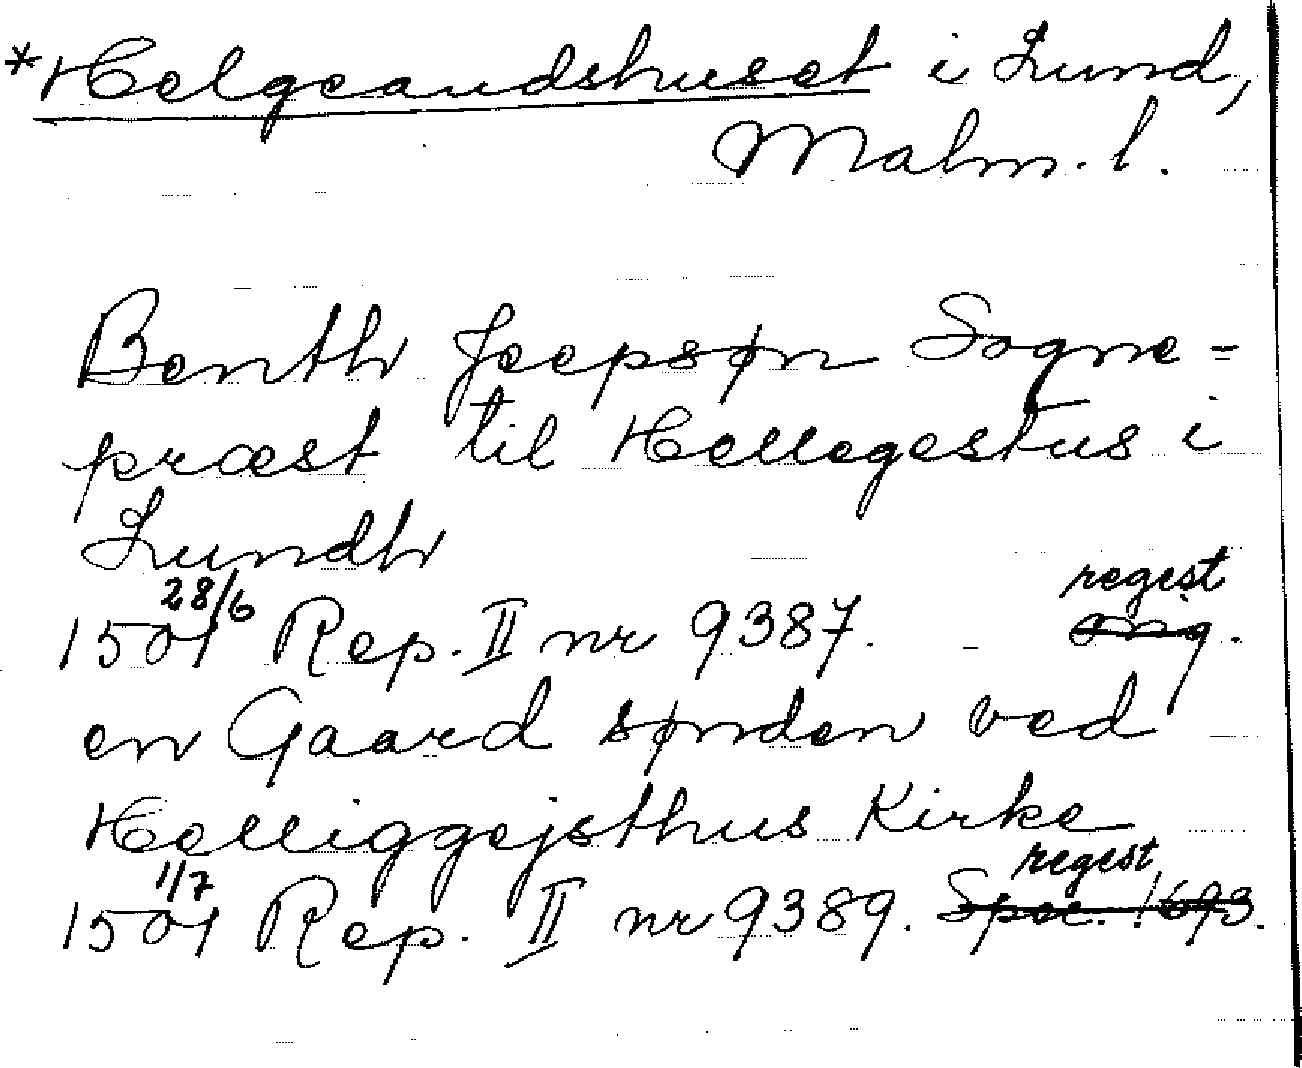 *Helgeandshuset i Lund,
Malm. l.
Benth Jeepsøn Sogne-
præst til Hellegestus i
Lundh
1501 28/6 Rep. II nr 9387. - orig. regest
en Gaard sønden ved
Helliggejsthus Kirke
1501 1/7 Rep. II nr 9389. Spec. 1693. regest